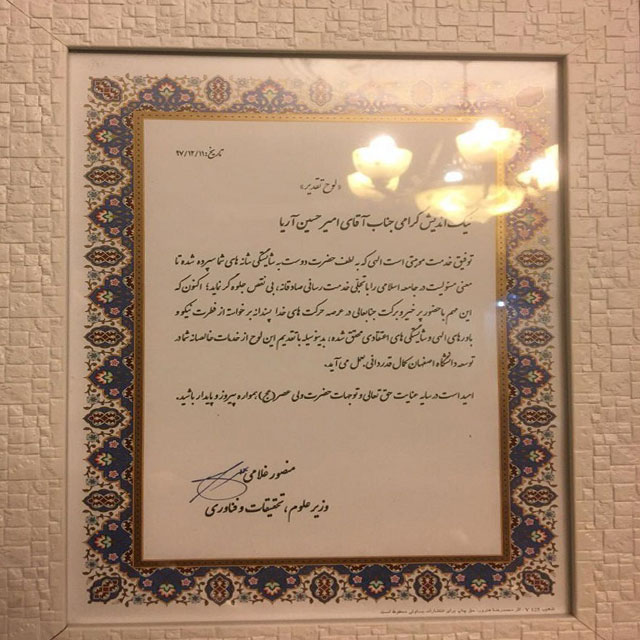 تاریخ: ۹۷/۱۲/۱۱
«لوح تقدیر»
نیک اندیش گرامی جناب آقای امیرحسین آریا
توفیق خدمت موهبتی است الهی که به لطف حضرت دوست به شایستگی شانه های شما سپرده شده تا
معنی مسئولیت در جامعه اسلامی را با تجلی خدمت رسانی صادقانه، بی نقص جلوه گر نماید؛ اکنون که
این مهم با حضور پر خیر و برکت جنابعالی در عرصه حرکت های خدا پسندانه برخواسته از فطرت نیکو و
باورهای الهی و شایستگی های اعتقادی محقق شده؛ بدینوسیله با تقدیم این لوح از خدمات خالصانه شما در
توسعه دانشگاه اصفهان کمال قدردانی بعمل می آید.
امید است در سایه عنایت حق تعالی و توجهات حضرت ولی عصر(عج) همواره پیروز و پایدار باشید.
منصور غلامی
وزیر علوم، تحقیقات و فناوری